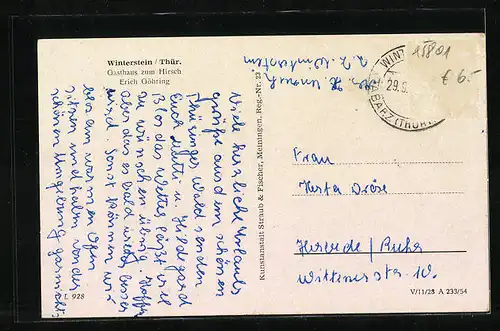 Winterstein / Thür.
Gasthaus zum Hirsch
Erich Göhring
Viele herzliche Urlaubs
grüße aus dem schönen
Thüringer Wald senden
Euch u. Hildegard
Blos das Wetter läßt viel
zu wünschen übrig. Hoffen
aber das es bald wieder besser
wird. Sonst können wir
blos am warmen Ofen
sitzen und haben von der
schönen Umgebung garnichts.
L 928
Kunstanstalt Straub & Fischer, Meiningen, Reg.-Nr. 23
Abs. H.
z. Z. Winterstein
WINT
29.9.
TABARZ (THÜR
15801
€ 6.-
Frau
Herta Dröse
Herdecke / Ruhr
Wittenerstr. 10.
V/11/28 A 233/54